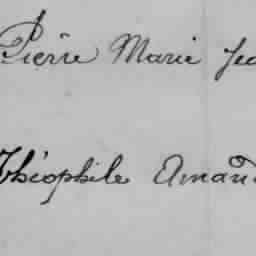 Pierre Marie Jea
Théophile Amand